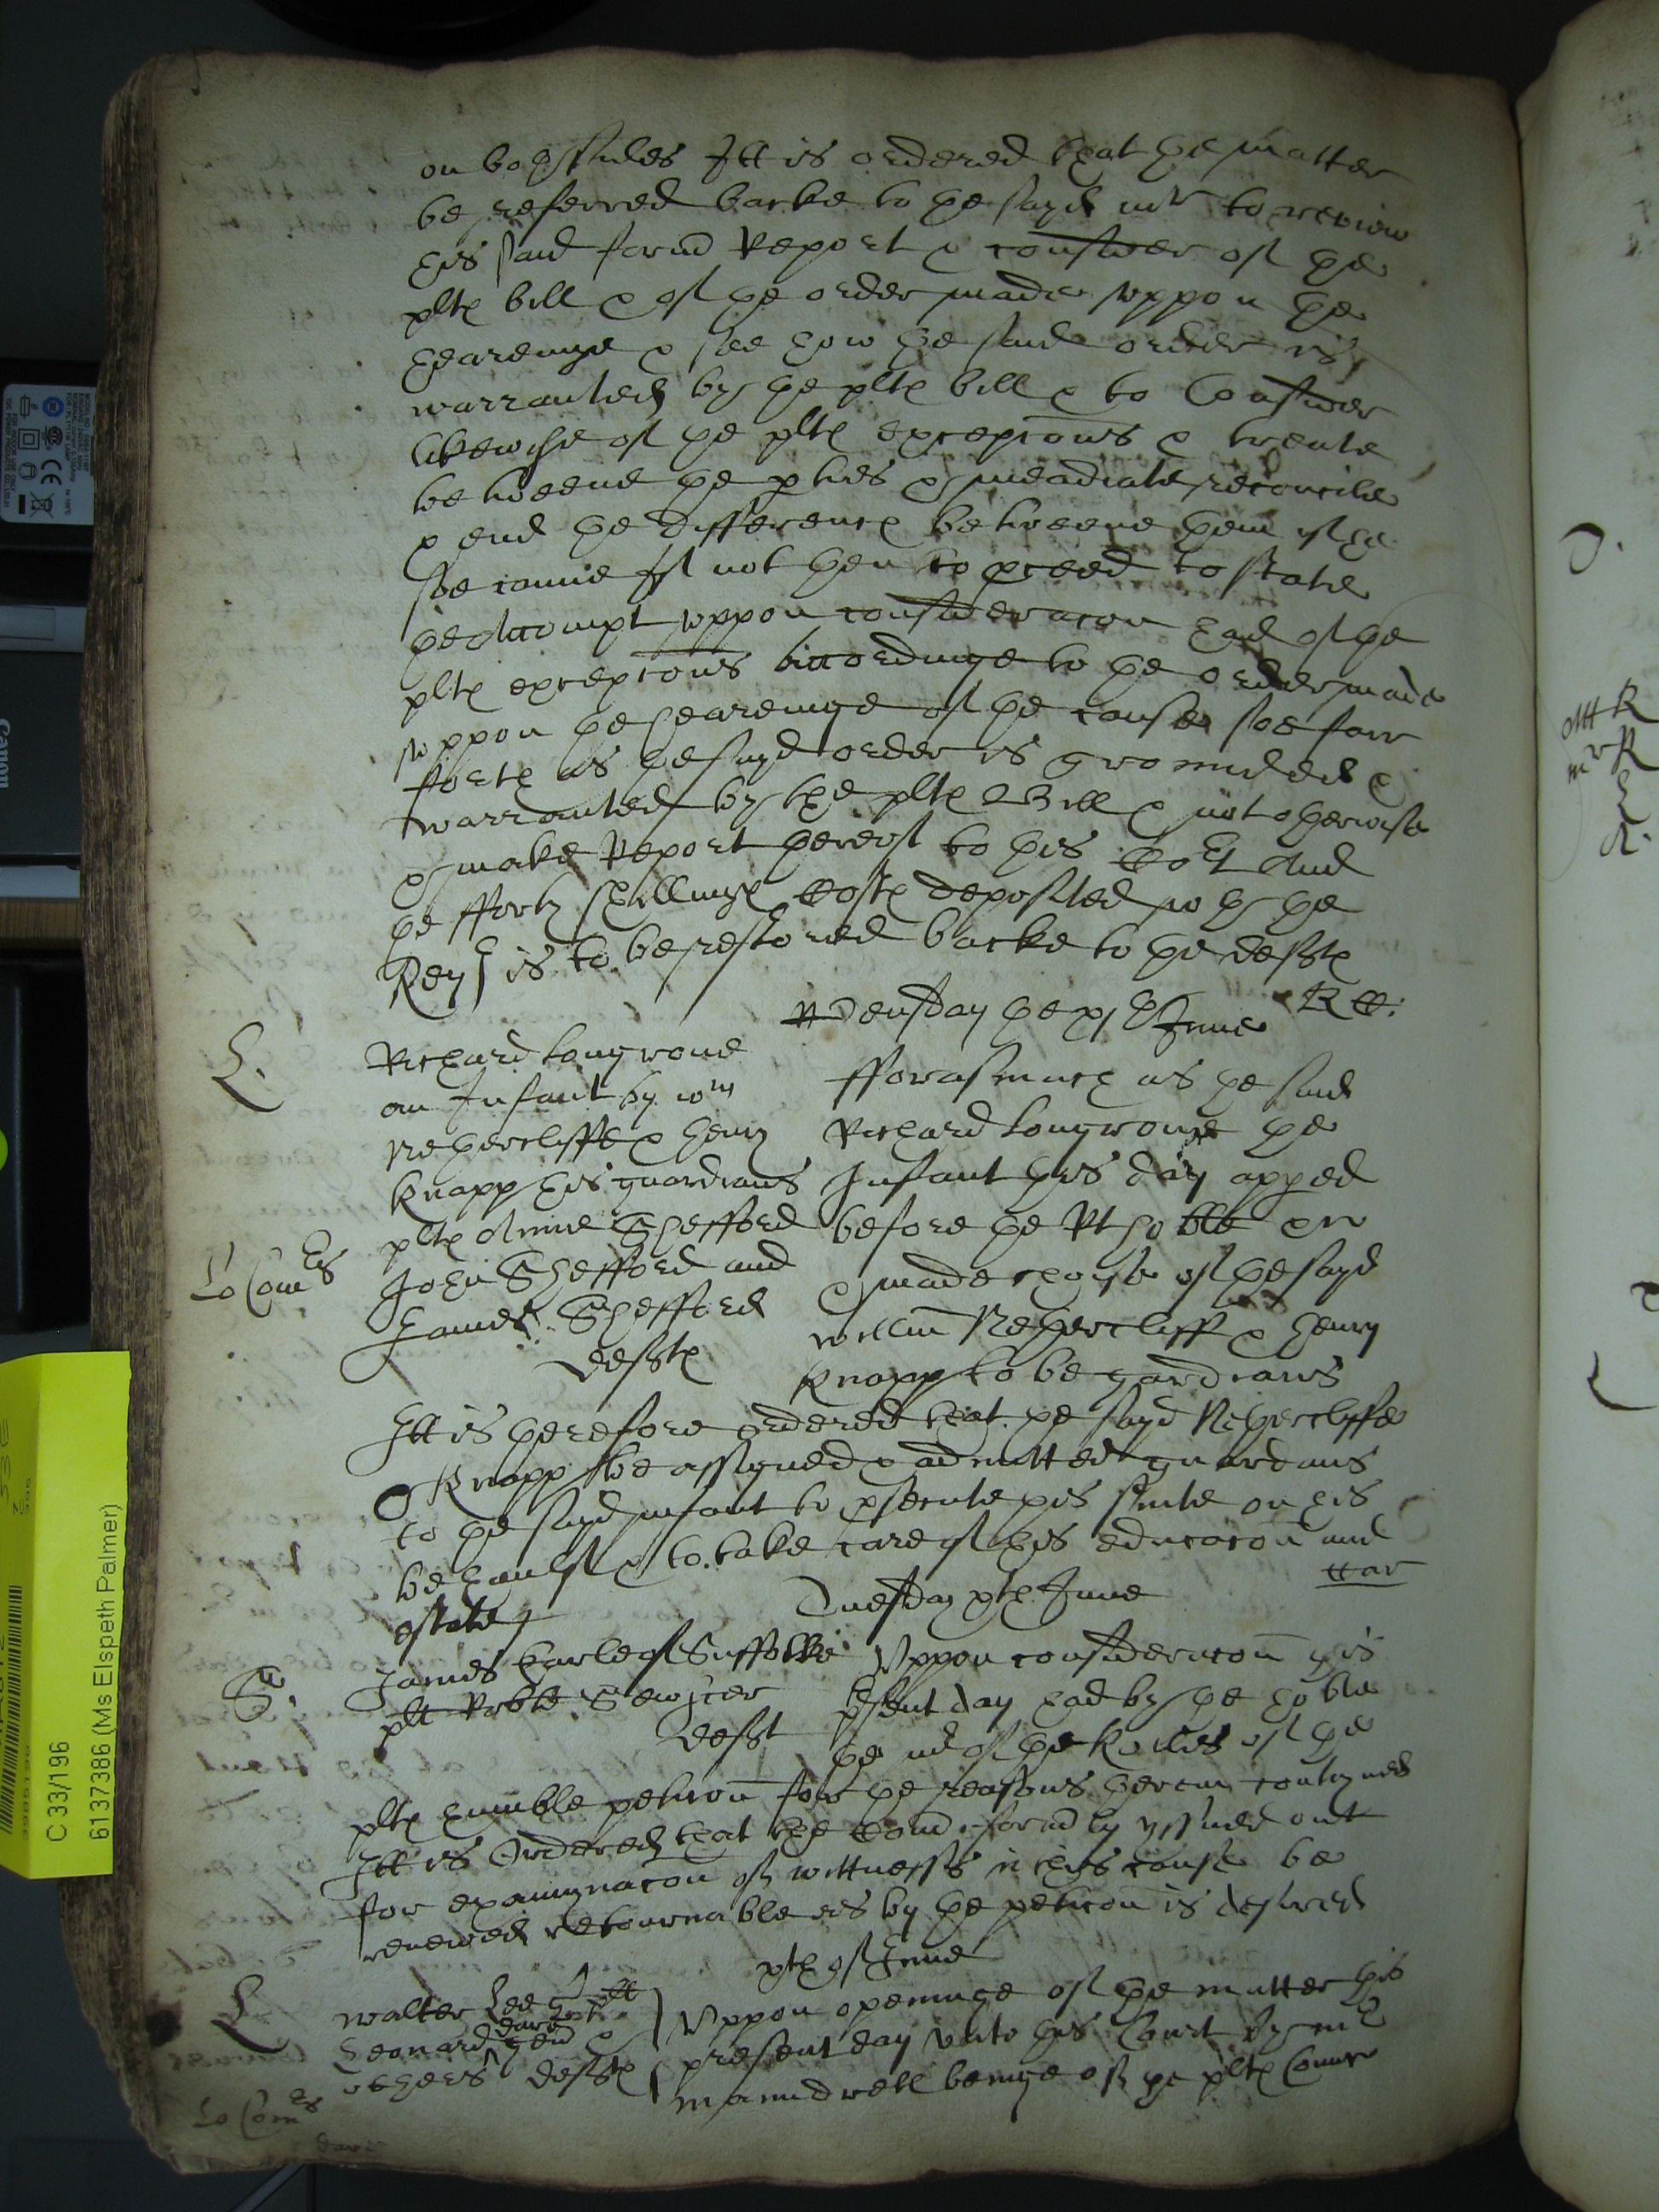 on both sides Itt is ordered that the matter
be referred backe to the sayd mr to review
his said form Report & consider of the
plts bill & of the order made uppon the
heareinge & see how the said order is
warranted by the plts bill & to Consider
likewyse of the plts excepcons & treate
betweene the pties & meadiate reconcile
& end the difference betweene them if he
soe canne If not then to pceed to state
the Accompt uppon consideracon had of the
plts excepcons accordinge to the order made
uppon the heareinge of the cause soe farr
forth as the sayd order is grounded &
warranted by the plts Bill & not otherwise
& make Report thereof to this Cort And
the fforty shillings Costs deposited wth the
Regr is to be restored backe to the defts
Wdensday the June RC:
L.
Richard Longrone
an Infant by wm
Nethercliffe & Henry
Knapp his guardians
plts Anne Shefford
John Shefford and
James Shefford
defts
Lo Comrs
fforasmuch as the said
Richard Longrone the
Infant this day apped
before the Rt hoble &c
& made choyse of the sayd
Willm Nethercliff & Henry
Knapp to be gardians
Itt is therefore ordered that the sayd Nethercliffe
& Knapp be assigned & admitted guardians
to the sayd infant to psecute this suite on his
behaulf & to take care of his educacon and
estate
Tuesday xth June
S.
James Earle of Suffolke
plt Robte Sewster
deft
Uppon consideracon this
psent day had by the hoble
the mr of the Rolles of the
plts humble peticon for the reasons therein contayned
Itt is Ordered that the Comd formly yssued out
for examynacon of wittnesses in this cause be
renewed retournable as by the peticon is desired
xth of June
L
Walter Lee plt
Leonard gen &
others defts
Lo Comrs
Uppon openinge of the matter this
present day unto this Court by mr
Maundrell beinge of the plts Councell
C 33/196
6137386 (Ms Elspeth Palmer)
Canon